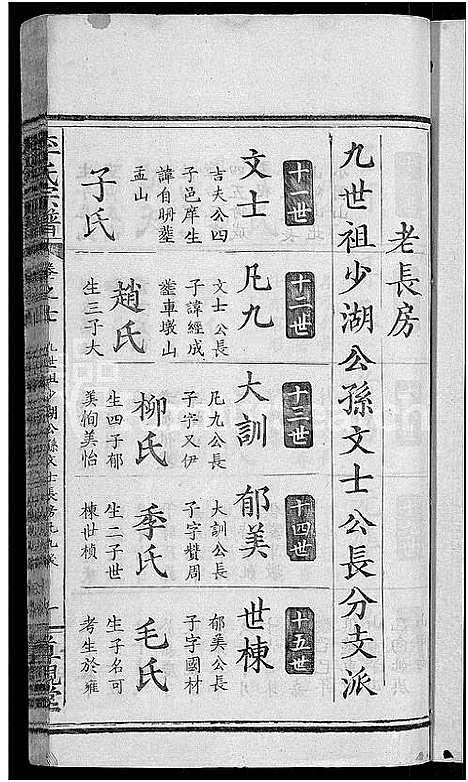 老長房
九世祖少湖公孫文士公長分支派
十一世
文士
吉夫公四
子邑庠生
諱自明塟
盂山
子氏
十二世
凡九
文士公長
子諱經成
塟車墩山
趙氏
生三子大
十三世
大訓
凡九公長
子字又伊
柳氏
生四子郁
美恂美怡
十四世
郁美
大訓公長
子字贊周
季氏
生二子世
棟世楨
十五世
世棟
郁美公長
子字國材
毛氏
生子名可
考生於雍
李氏宗譜
卷之七
九世祖少湖公孫文士長房
一